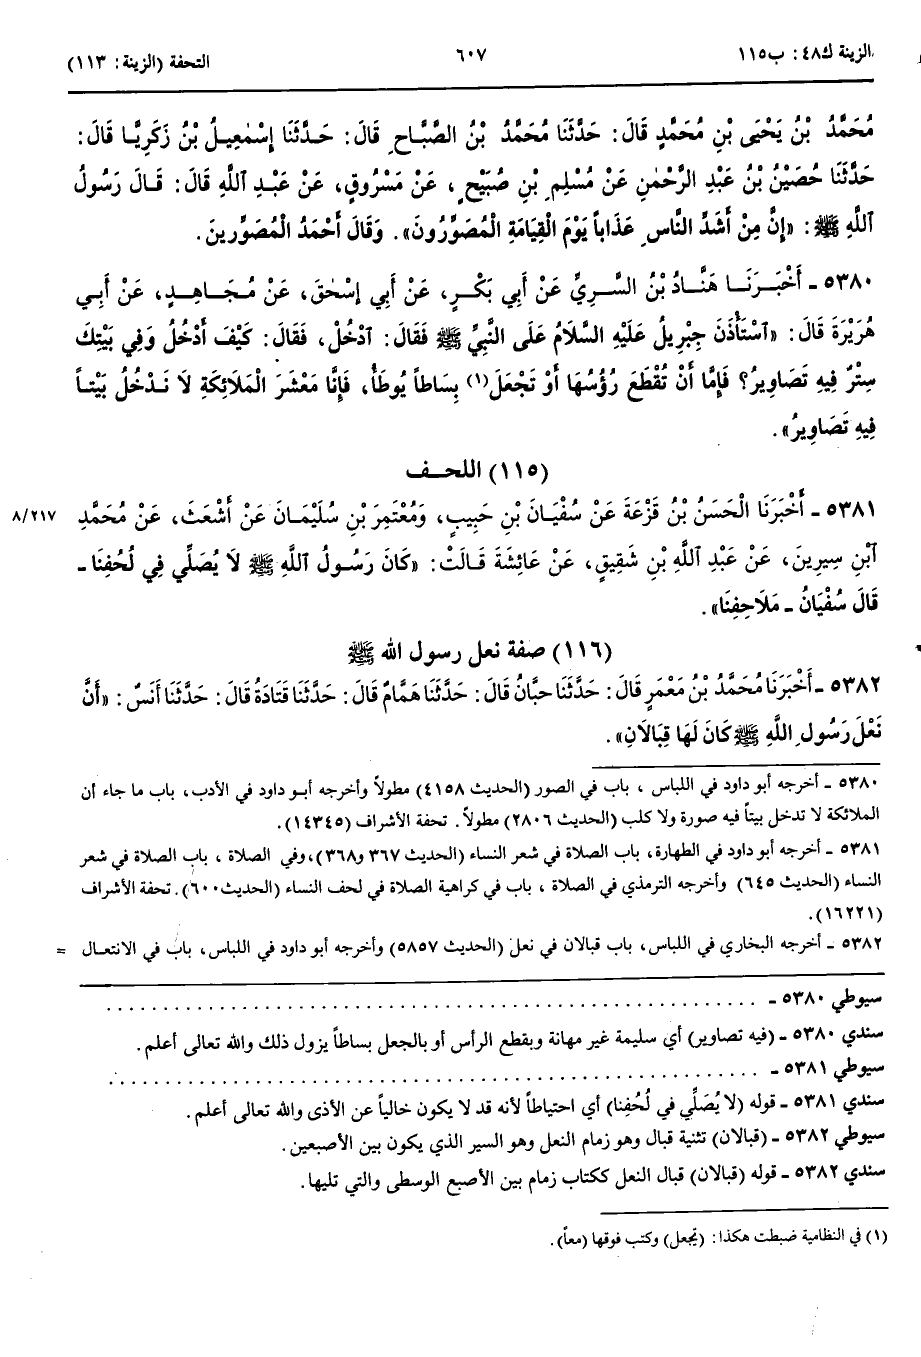 الزينة ك٤٨: ب١١٥ ٦٠٧ التحفة (الزينة: ١١٣)
مُحَمَّدُ بْنُ يَحْيَى بْنِ مُحَمَّدٍ قَالَ: حَدَّثَنَا مُحَمَّدُ بْنُ الصَّبَّاحِ قَالَ: حَدَّثَنَا إِسْمٰعِيلُ بْنُ زَكَرِيَّا قَالَ:
حَدَّثَنَا حُصَيْنُ بْنُ عَبْدِ الرَّحْمٰنِ عَنْ مُسْلِمِ بْنِ صُبَيْحٍ، عَنْ مَسْرُوقٍ، عَنْ عَبْدِ ٱللَّهِ قَالَ: قَالَ رَسُولُ
ٱللَّهِ ﷺ: «إِنَّ مِنْ أَشَدِّ النَّاسِ عَذَاباً يَوْمَ الْقِيَامَةِ الْمُصَوِّرُونَ». وَقَالَ أَحْمَدُ الْمُصَوِّرِينَ.
٥٣٨٠ ـ أَخْبَرَنَا هَنَّادُ بْنُ السَّرِيِّ عَنْ أَبِي بَكْرٍ، عَنْ أَبِي إِسْحٰقَ، عَنْ مُجَاهِدٍ، عَنْ أَبِي
هُرَيْرَةَ قَالَ: «ٱسْتَأْذَنَ جِبْرِيلُ عَلَيْهِ السَّلَامُ عَلَى النَّبِيِّ ﷺ فَقَالَ: ٱدْخُلْ، فَقَالَ: كَيْفَ أَدْخُلُ وَفِي بَيْتِكَ
سِتْرٌ فِيهِ تَصَاوِيرُ؟ فَإِمَّا أَنْ تُقْطَعَ رُؤُسُهَا أَوْ تَجْعَلَ(١) بِسَاطاً يُوطَأُ، فَإِنَّا مَعْشَرَ الْمَلَائِكَةِ لَا نَدْخُلُ بَيْتاً
فِيهِ تَصَاوِيرُ».
(١١٥) اللحف
٥٣٨١ ـ أَخْبَرَنَا الْحَسَنُ بْنُ قَزْعَةَ عَنْ سُفْيَانَ بْنِ حَبِيبٍ، وَمُعْتَمِرِ بْنِ سُلَيْمَانَ عَنْ أَشْعَثَ، عَنْ مُحَمَّدِ ٨/٢١٧
ٱبْنِ سِيرِينَ، عَنْ عَبْدِ ٱللَّهِ بْنِ شَقِيقٍ، عَنْ عَائِشَةَ قَالَتْ: «كَانَ رَسُولُ ٱللَّهِ ﷺ لَا يُصَلِّي فِي لُحُفِنَا ـ
قَالَ سُفْيَانُ ـ مَلَاحِفِنَا».
(١١٦) صفة نعل رسول الله ﷺ
٥٣٨٢ ـ أَخْبَرَنَا مُحَمَّدُ بْنُ مَعْمَرٍ قَالَ: حَدَّثَنَا حِبَّانُ قَالَ: حَدَّثَنَا هَمَّامٌ قَالَ: حَدَّثَنَا قَتَادَةُ قَالَ: حَدَّثَنَا أَنَسٌ: «أَنَّ
نَعْلَ رَسُولِ اللَّهِ ﷺ كَانَ لَهَا قِبَالَانِ».
٥٣٨٠ ـ أخرجه أبو داود في اللباس، باب في الصور (الحديث ٤١٥٨) مطولاً وأخرجه أبو داود في الأدب، باب ما جاء أن
الملائكة لا تدخل بيتاً فيه صورة ولا كلب (الحديث ٢٨٠٦) مطولاً. تحفة الأشراف (١٤٣٤٥).
٥٣٨١ ـ أخرجه أبو داود في الطهارة، باب الصلاة في شعر النساء (الحديث ٣٦٧ و٣٦٨)، وفي الصلاة، باب الصلاة في شعر
النساء (الحديث ٦٤٥) وأخرجه الترمذي في الصلاة، باب في كراهية الصلاة في لحف النساء (الحديث ٦٠٠). تحفة الأشراف
(١٦٢٢١).
٥٣٨٢ ـ أخرجه البخاري في اللباس، باب قبالان في نعل (الحديث ٥٨٥٧) وأخرجه أبو داود في اللباس، باب في الانتعال =
سيوطي ٥٣٨٠ ـ ............................................................
سندي ٥٣٨٠ ـ (فيه تصاوير) أي سليمة غير مهانة وبقطع الرأس أو بالجعل بساطاً يزول ذلك والله تعالى أعلم.
سيوطي ٥٣٨١ ـ ............................................................
سندي ٥٣٨١ ـ قوله (لا يُصَلِّي في لُحُفِنا) أي احتياطاً لأنه قد لا يكون خالياً عن الأذى والله تعالى أعلم.
سيوطي ٥٣٨٢ ـ (قبالان) تثنية قبال وهو زمام النعل وهو السير الذي يكون بين الأصبعين.
سندي ٥٣٨٢ ـ قوله (قبالان) قبال النعل ككتاب زمام بين الأصبع الوسطى والتي تليها.
(١) في النظامية ضبطت هكذا: (تجعل) وكتب فوقها (معاً).